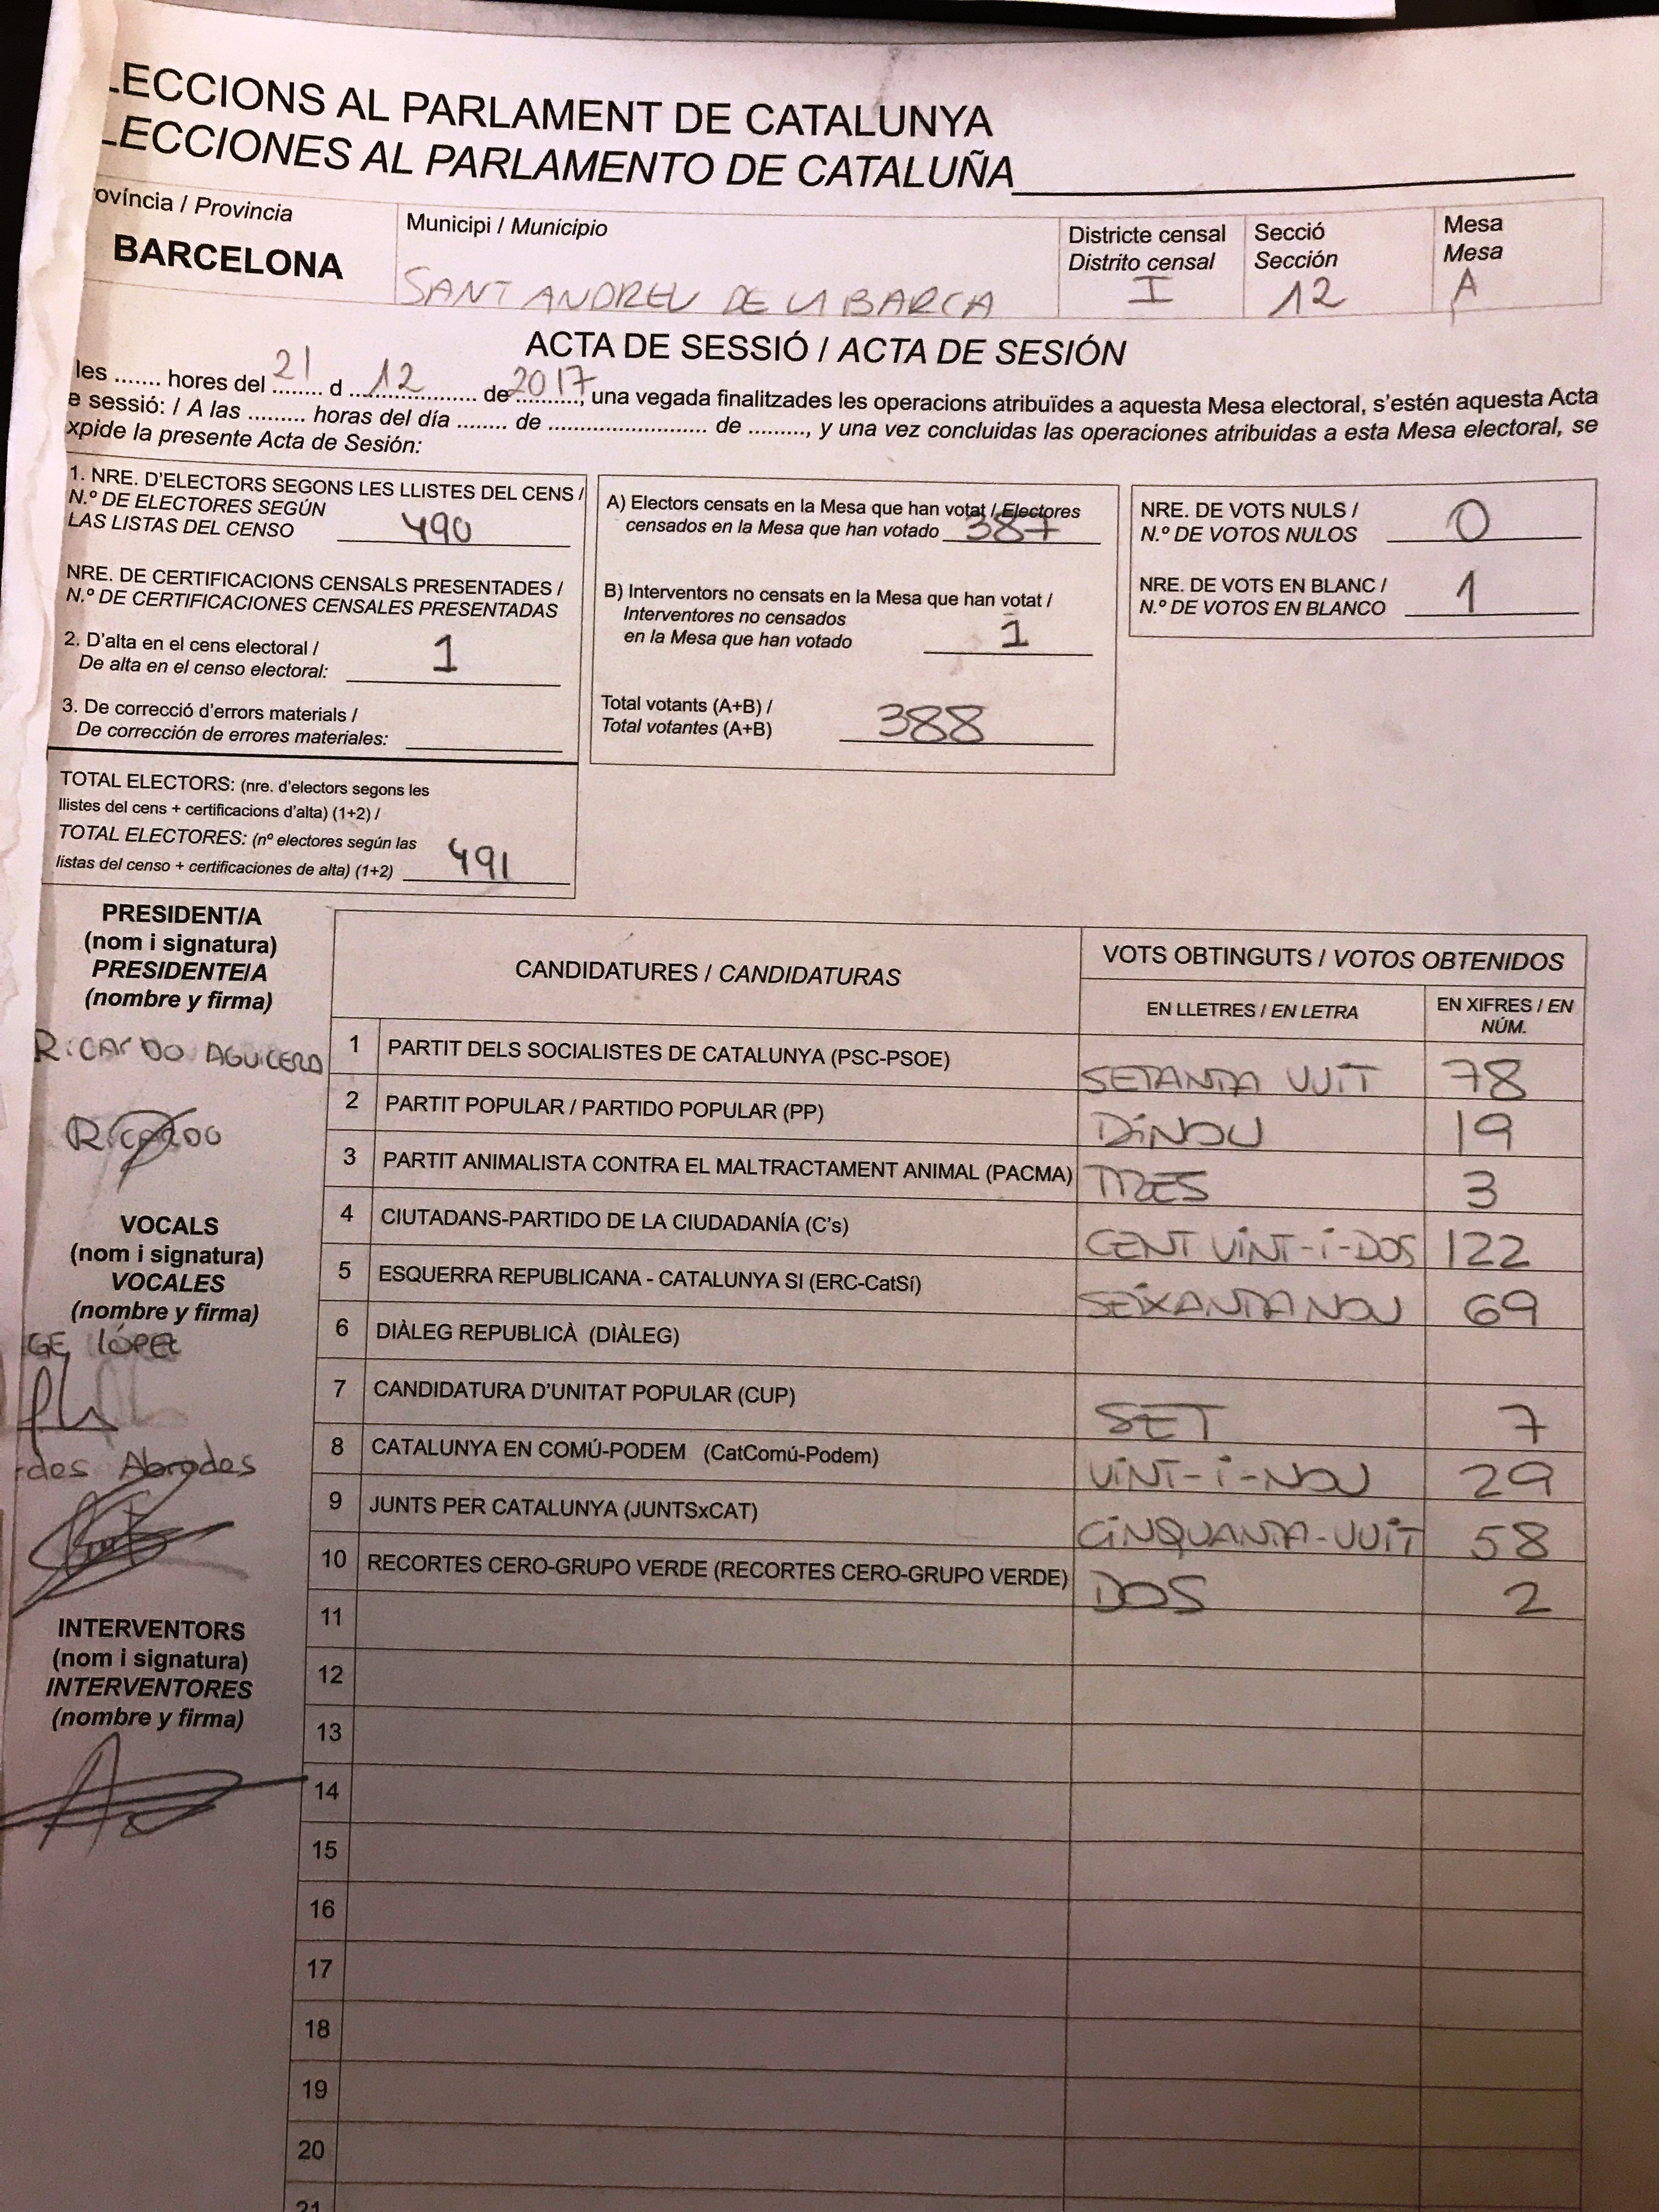 LECCIONS AL PARLAMENT DE CATALUNYA
LECCIONES AL PARLAMENTO DE CATALUÑA
ovíncia / Provincia
BARCELONA
Municipi / Municipio
SANT ANDREU DE LA BARCA
Districte censal
Distrito censal
I
Secció
Sección
12
Mesa
Mesa
A
ACTA DE SESSIÓ / ACTA DE SESIÓN
les ....... hores del 21 d 12 de 2017, una vegada finalitzades les operacions atribuïdes a aquesta Mesa electoral, s'estén aquesta Acta
e sessió: / A las ......... horas del día ........ de ........................ de ........., y una vez concluidas las operaciones atribuidas a esta Mesa electoral, se
xpide la presente Acta de Sesión:
1. NRE. D'ELECTORS SEGONS LES LLISTES DEL CENS /
N.º DE ELECTORES SEGÚN
LAS LISTAS DEL CENSO 490
NRE. DE CERTIFICACIONS CENSALS PRESENTADES /
N.º DE CERTIFICACIONES CENSALES PRESENTADAS
2. D'alta en el cens electoral /
De alta en el censo electoral: 1
3. De correcció d'errors materials /
De corrección de errores materiales:
TOTAL ELECTORS: (nre. d'electors segons les
llistes del cens + certificacions d'alta) (1+2) /
TOTAL ELECTORES: (nº electores según las
listas del censo + certificaciones de alta) (1+2) 491
A) Electors censats en la Mesa que han votat / Electores
censados en la Mesa que han votado 387
B) Interventors no censats en la Mesa que han votat /
Interventores no censados
en la Mesa que han votado 1
Total votants (A+B) /
Total votantes (A+B) 388
NRE. DE VOTS NULS /
N.º DE VOTOS NULOS 0
NRE. DE VOTS EN BLANC /
N.º DE VOTOS EN BLANCO 1
PRESIDENT/A
(nom i signatura)
PRESIDENTE/A
(nombre y firma)
RICARDO AGUILERA
RICARDO
VOCALS
(nom i signatura)
VOCALES
(nombre y firma)
GE LÓPEZ
des Abrodes
INTERVENTORS
(nom i signatura)
INTERVENTORES
(nombre y firma)
CANDIDATURES / CANDIDATURAS
VOTS OBTINGUTS / VOTOS OBTENIDOS
EN LLETRES / EN LETRA
EN XIFRES / EN
NÚM.
1 PARTIT DELS SOCIALISTES DE CATALUNYA (PSC-PSOE) SETANTA VUIT 78
2 PARTIT POPULAR / PARTIDO POPULAR (PP) DINOU 19
3 PARTIT ANIMALISTA CONTRA EL MALTRACTAMENT ANIMAL (PACMA) TRES 3
4 CIUTADANS-PARTIDO DE LA CIUDADANÍA (C's) CENT VINT-I-DOS 122
5 ESQUERRA REPUBLICANA - CATALUNYA SI (ERC-CatSí) SEIXANTA NOU 69
6 DIÀLEG REPUBLICÀ (DIÀLEG)
7 CANDIDATURA D'UNITAT POPULAR (CUP) SET 7
8 CATALUNYA EN COMÚ-PODEM (CatComú-Podem) VINT-I-NOU 29
9 JUNTS PER CATALUNYA (JUNTSxCAT) CINQUANTA-VUIT 58
10 RECORTES CERO-GRUPO VERDE (RECORTES CERO-GRUPO VERDE) DOS 2
11
12
13
14
15
16
17
18
19
20
21